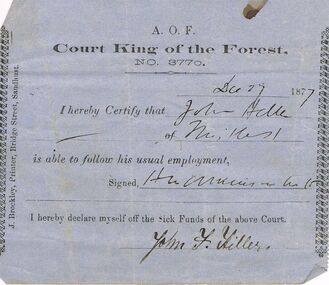 A. O. F.
Court King of the Forest,
NO. 3770.
Dec 27 1877
I hereby Certify that John Hille
of
is able to follow his usual employment,
Signed,
I hereby declare myself off the Sick Funds of the above Court.
John F. Hiller.
J. Breckley, Printer, Bridge Street, Sandhurst.